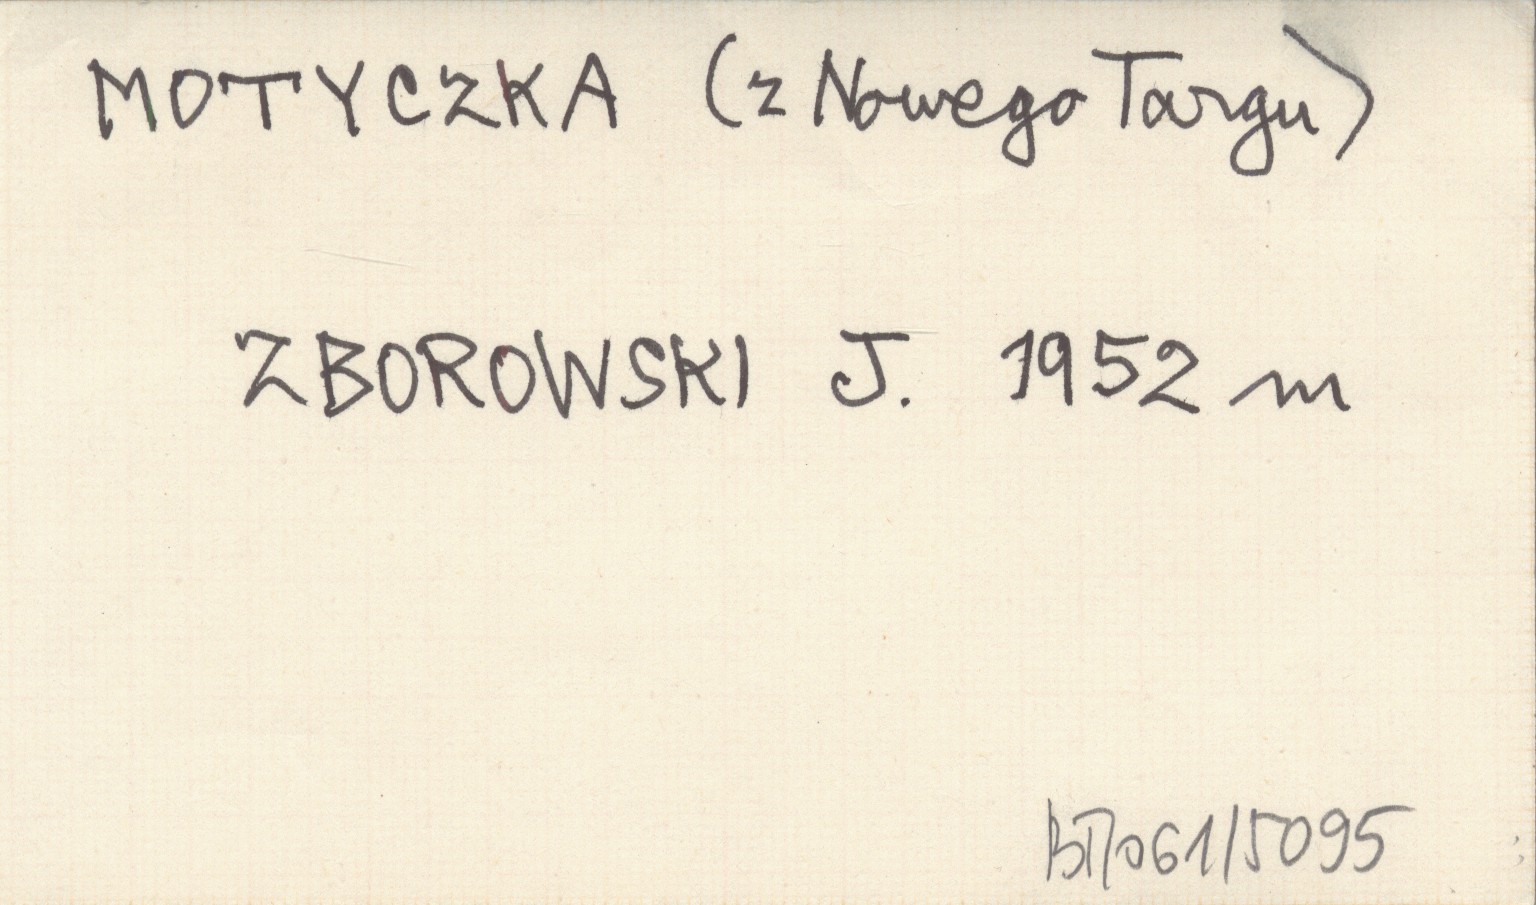 MOTYCZKA (z Nowego Targu)
ZBOROWSKI J. 1952 m
BT/061/5095